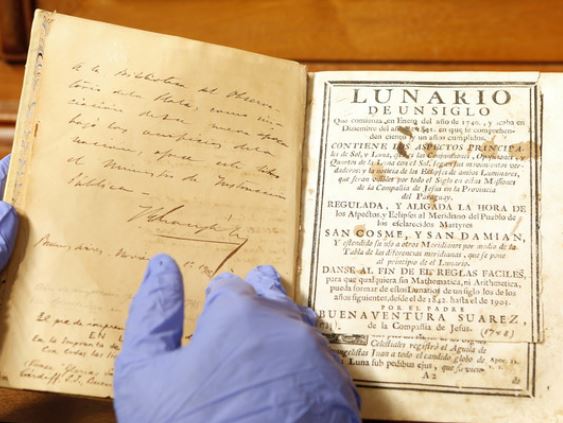 A la Biblioteca del Observa-
torio de la Plata, como ini-
ciación de su nueva época
bajo los auspicios de la
este libro
el Ministro de Instrucción
Pública
Buenos Aires,
EN
En la Imprenta
LUNARIO
DE UN SIGLO
Que comienza en Enero del año de 1740, y acaba en
Diciembre del año de 1841. en que se comprehen-
den ciento y un años cumplidos.
CONTIENE LOS ASPECTOS PRINCIPA-
les de Sol, y Luna, esto es las Conjunciones, Oposiciones y
Quartos de la Luna con el Sol, segun sus movimientos ver-
daderos: y la noticia de los Eclipses de ambos Luminares,
que seràn visibles por todo el Siglo en estas Missiones
de la Compañia de Jesus en la Provincia
del Paraguay.
REGULADA, Y ALIGADA LA HORA DE
los Aspectos, y Eclipses al Meridiano del Pueblo de
los esclarecidos Martyres
SAN COSME, Y SAN DAMIAN,
Y estendido su uso a otros Meridianos por medio de la
Tabla de las diferencias meridianas, que se pone
al principio de el Lunario.
DANSE AL FIN DE EL REGLAS FACILES,
para que qualquiera sin Mathematica, ni Arithmetica,
pueda formar de estos Lunarios de un siglo los de los
años siguientes, desde el de 1842. hasta el de 1903.
POR EL PADRE
BUENAVENTURA SUAREZ,
de la Compañia de Jesus.
(1748)
Celestiales registró el Aguila de
Evangelistas Juan a todo el candido globo de Apoc. 12.
Luna sub pedibus ejus, que su
A 2 do